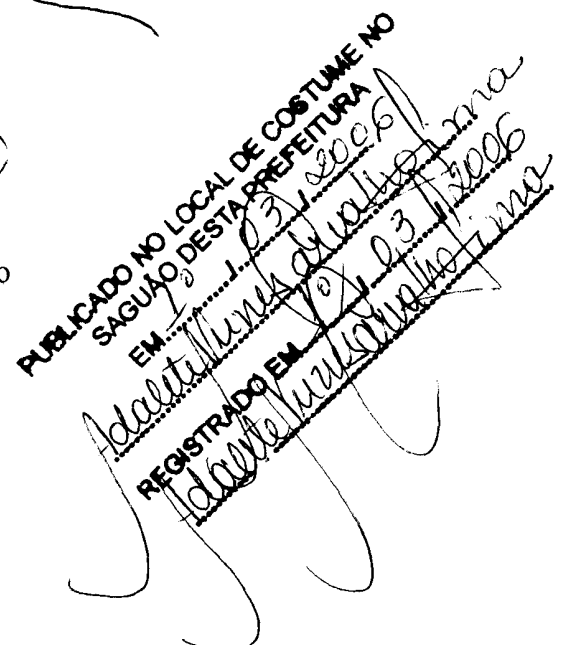 PUBLICADO NO LOCAL DE COSTUME NO
SAGUÃO DESTA PREFEITURA
EM 1º, 03, 2006
Adalete Nunes Carvalho Lima
REGISTRADO EM 1º, 03, 2006
Adalete Nunes Carvalho Lima